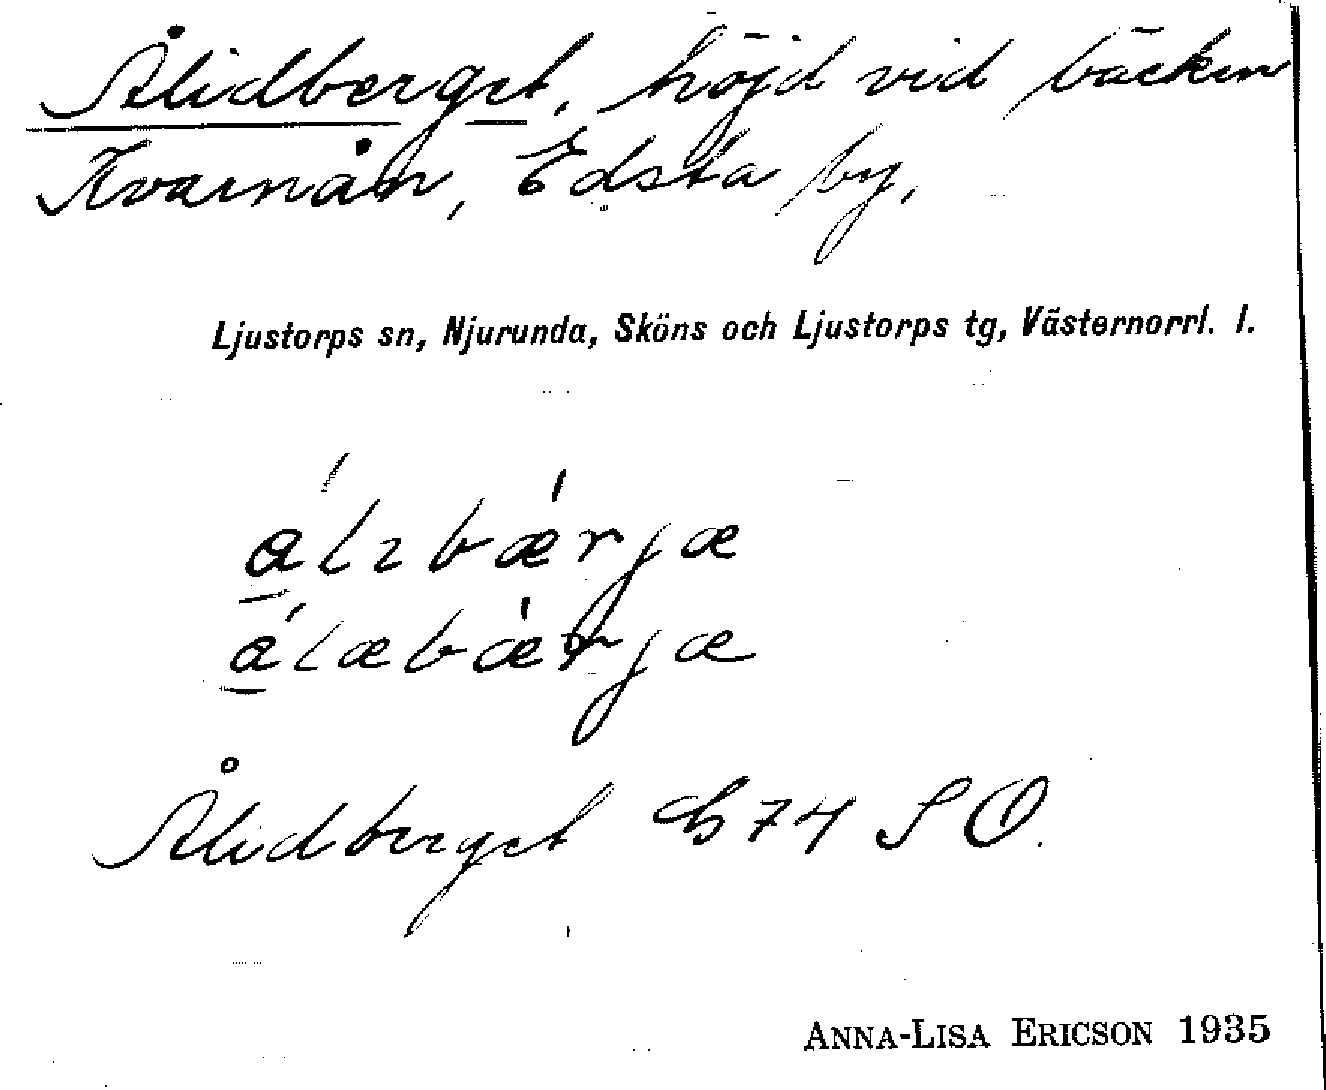 Ålidberget, höjd vid bäcken
Kvarnån, Edsta by.
Ljustorps sn, Njurunda, Sköns och Ljustorps tg, Västernorrl. l.
álɩbǽrjæ
álæbǽrjæ
Ålidberget G74 SO.
ANNA-LISA ERICSON 1935